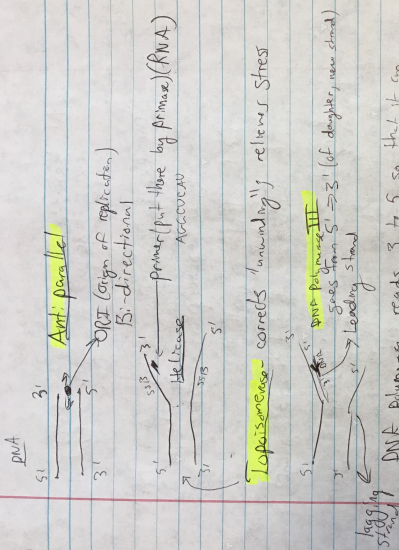 DNA
5' 3'
Antiparallel
3' 5'
ORI (origin of replication)
Bi-directional
5' 3'
SSB
primer (put there by primase) (RNA)
AGGCUCAU
Helicase
SSB
3' 5'
Topoisomerase - corrects "unwinding"; relieves stress
5' 3'
5'
DNA Polymerase III
goes from 5' → 3' (of daughter, new strand)
Leading strand
3' 5'
lagging
strand
DNA Polymerase reads 3 to 5 so that it can